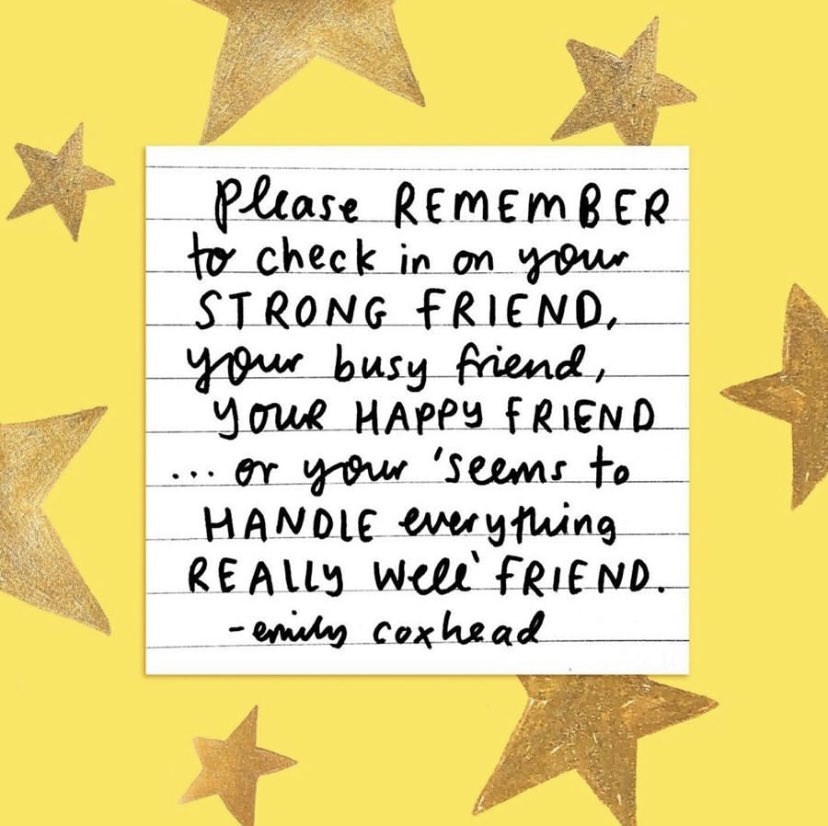 please REMEMBER
to check in on your
STRONG FRIEND,
your busy friend,
YOUR HAPPY FRIEND
... or your 'seems to
HANDLE everything
REALLY well' FRIEND.
- emily coxhead